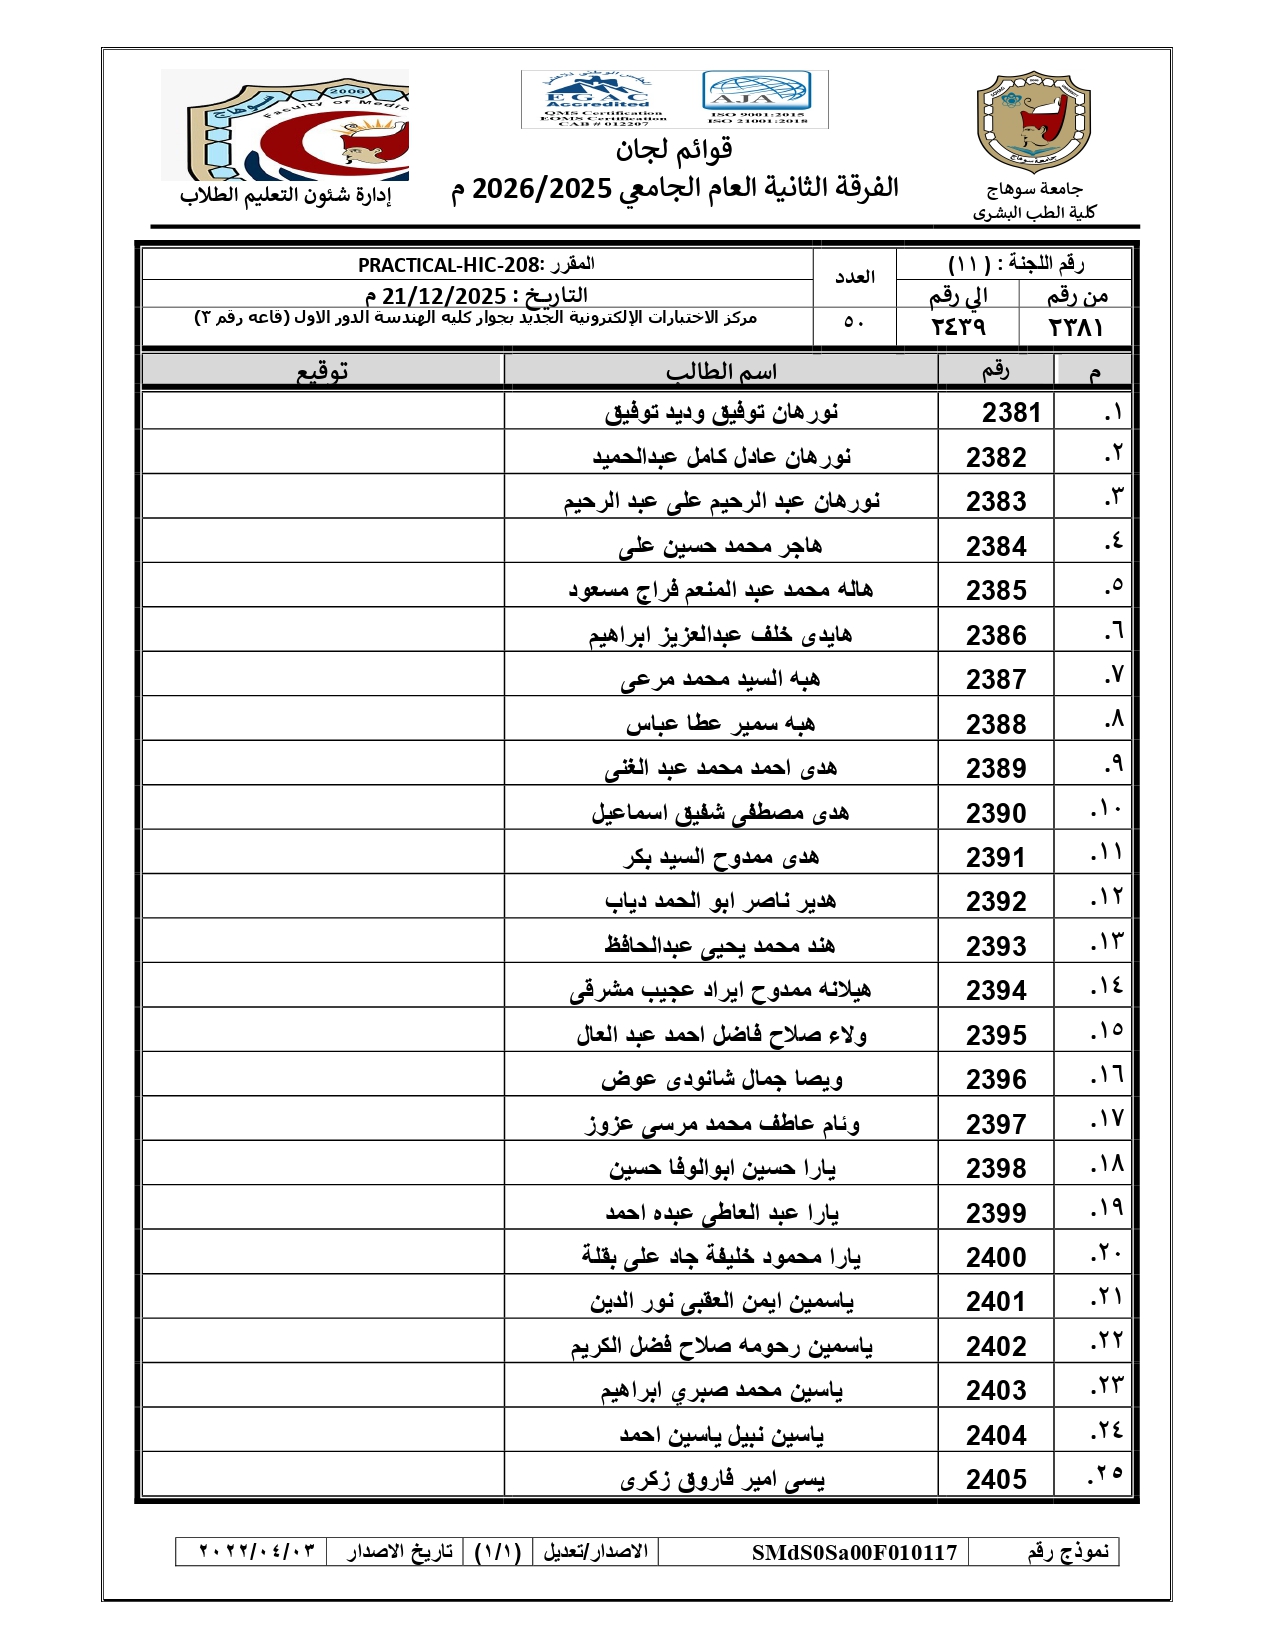 2006
سوهاج
Faculty of Medic
EGAC
Accredited
QMS Certification
EOMS Certification
CAB # 012207
AJA
ISO 9001:2015
ISO 21001:2018
جامعة سوهاج
قوائم لجان
الفرقة الثانية العام الجامعي 2026/2025 م
جامعة سوهاج
كلية الطب البشرى
إدارة شئون التعليم الطلاب
رقم اللجنة : ( ١١) العدد المقرر :PRACTICAL-HIC-208
من رقم الي رقم التاريخ : 21/12/2025 م
٢٣٨١ ٢٤٣٩ ٥٠ مركز الاختبارات الإلكترونية الجديد بجوار كليه الهندسة الدور الاول (قاعه رقم ٣)
م رقم اسم الطالب توقيع
١. 2381 نورهان توفيق وديد توفيق
٢. 2382 نورهان عادل كامل عبدالحميد
٣. 2383 نورهان عبد الرحيم على عبد الرحيم
٤. 2384 هاجر محمد حسين على
٥. 2385 هاله محمد عبد المنعم فراج مسعود
٦. 2386 هايدى خلف عبدالعزيز ابراهيم
٧. 2387 هبه السيد محمد مرعى
٨. 2388 هبه سمير عطا عباس
٩. 2389 هدى احمد محمد عبد الغنى
١٠. 2390 هدى مصطفى شفيق اسماعيل
١١. 2391 هدى ممدوح السيد بكر
١٢. 2392 هدير ناصر ابو الحمد دياب
١٣. 2393 هند محمد يحيى عبدالحافظ
١٤. 2394 هيلانه ممدوح ايراد عجيب مشرقى
١٥. 2395 ولاء صلاح فاضل احمد عبد العال
١٦. 2396 ويصا جمال شانودى عوض
١٧. 2397 وئام عاطف محمد مرسى عزوز
١٨. 2398 يارا حسين ابوالوفا حسين
١٩. 2399 يارا عبد العاطى عبده احمد
٢٠. 2400 يارا محمود خليفة جاد على بقلة
٢١. 2401 ياسمين ايمن العقبى نور الدين
٢٢. 2402 ياسمين رحومه صلاح فضل الكريم
٢٣. 2403 ياسين محمد صبري ابراهيم
٢٤. 2404 ياسين نبيل ياسين احمد
٢٥. 2405 يسى امير فاروق زكرى
نموذج رقم SMdS0Sa00F010117 الاصدار/تعديل (١/١) تاريخ الاصدار ٢٠٢٢/٠٤/٠٣